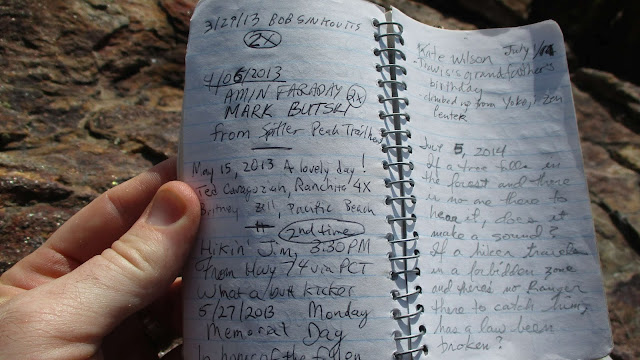 3/29/13 BOB
2X
4/06/2013
AMIN FARADAY 2X
MARK BUTSKI
from Spitler Peak Trailhead
May 15, 2013 A lovely day!
Ted, Ranchita 4X
Britney, Pacific Beach
2nd time
Hikin' Jim, 3:30 PM
From Hwy 74 via PCT
What a butt kicker
5/27/2013 Monday
Memorial Day
In honor of the fallen
Kate Wilson July 1/14
-Travis's grandfather's
birthday
climbed up from
Center
July 5, 2014
If a tree falls in
the forest and there
is no one there to
hear it, does it
make a sound?
If a hiker travels
in a forbidden zone
and there's no Ranger
there to catch him,
has a law been
broken?